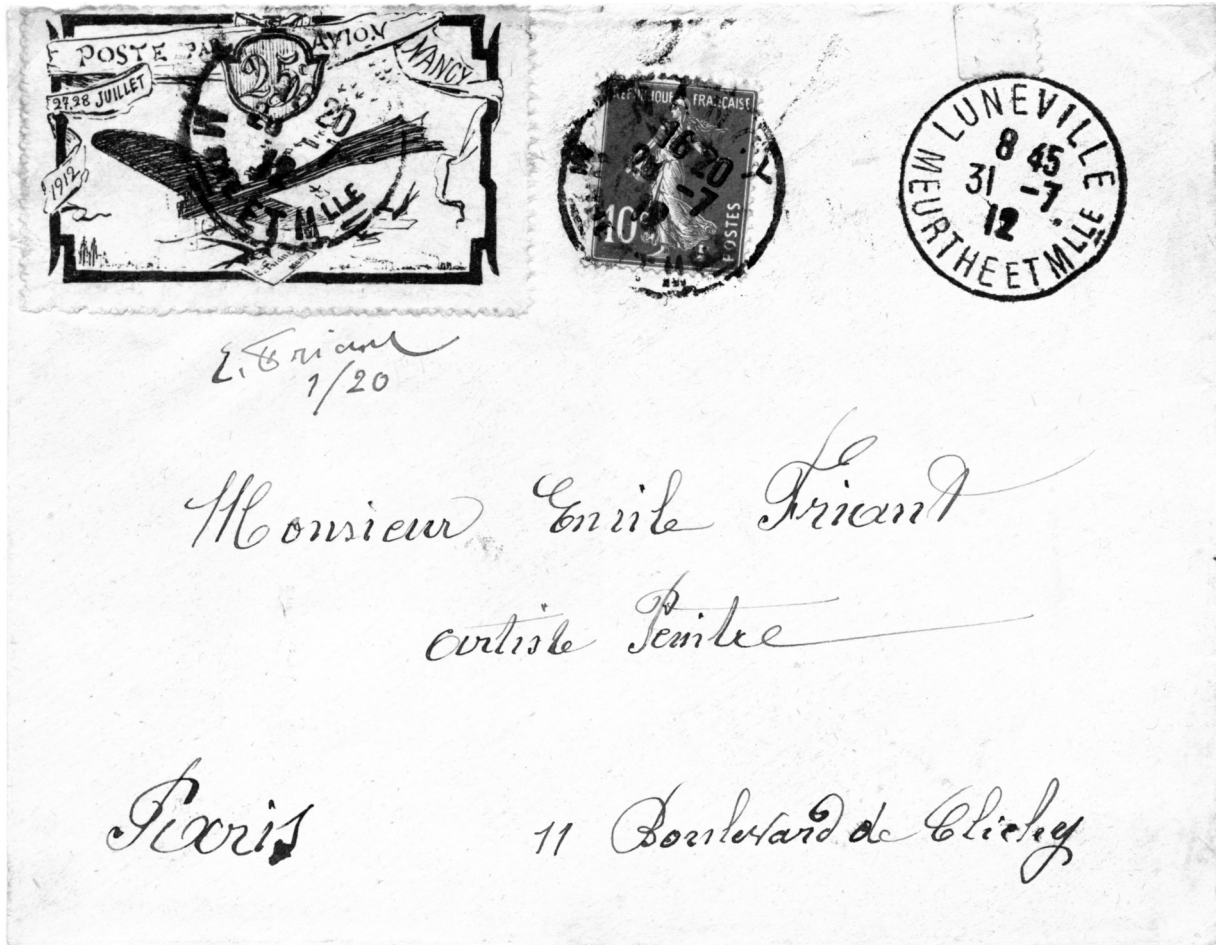 POSTE PAR AVION NANCY
25c
27.28 JUILLET
1912
ET MLLE
REPUBLIQUE FRANÇAISE
10c
POSTES
16 20
-7
12
LUNEVILLE
8 45
31 -7
12
MEURTHE ET MLLE
E. Friant
1/20
Monsieur Emile Friant
artiste Peintre
Paris 11 Boulevard de Clichy